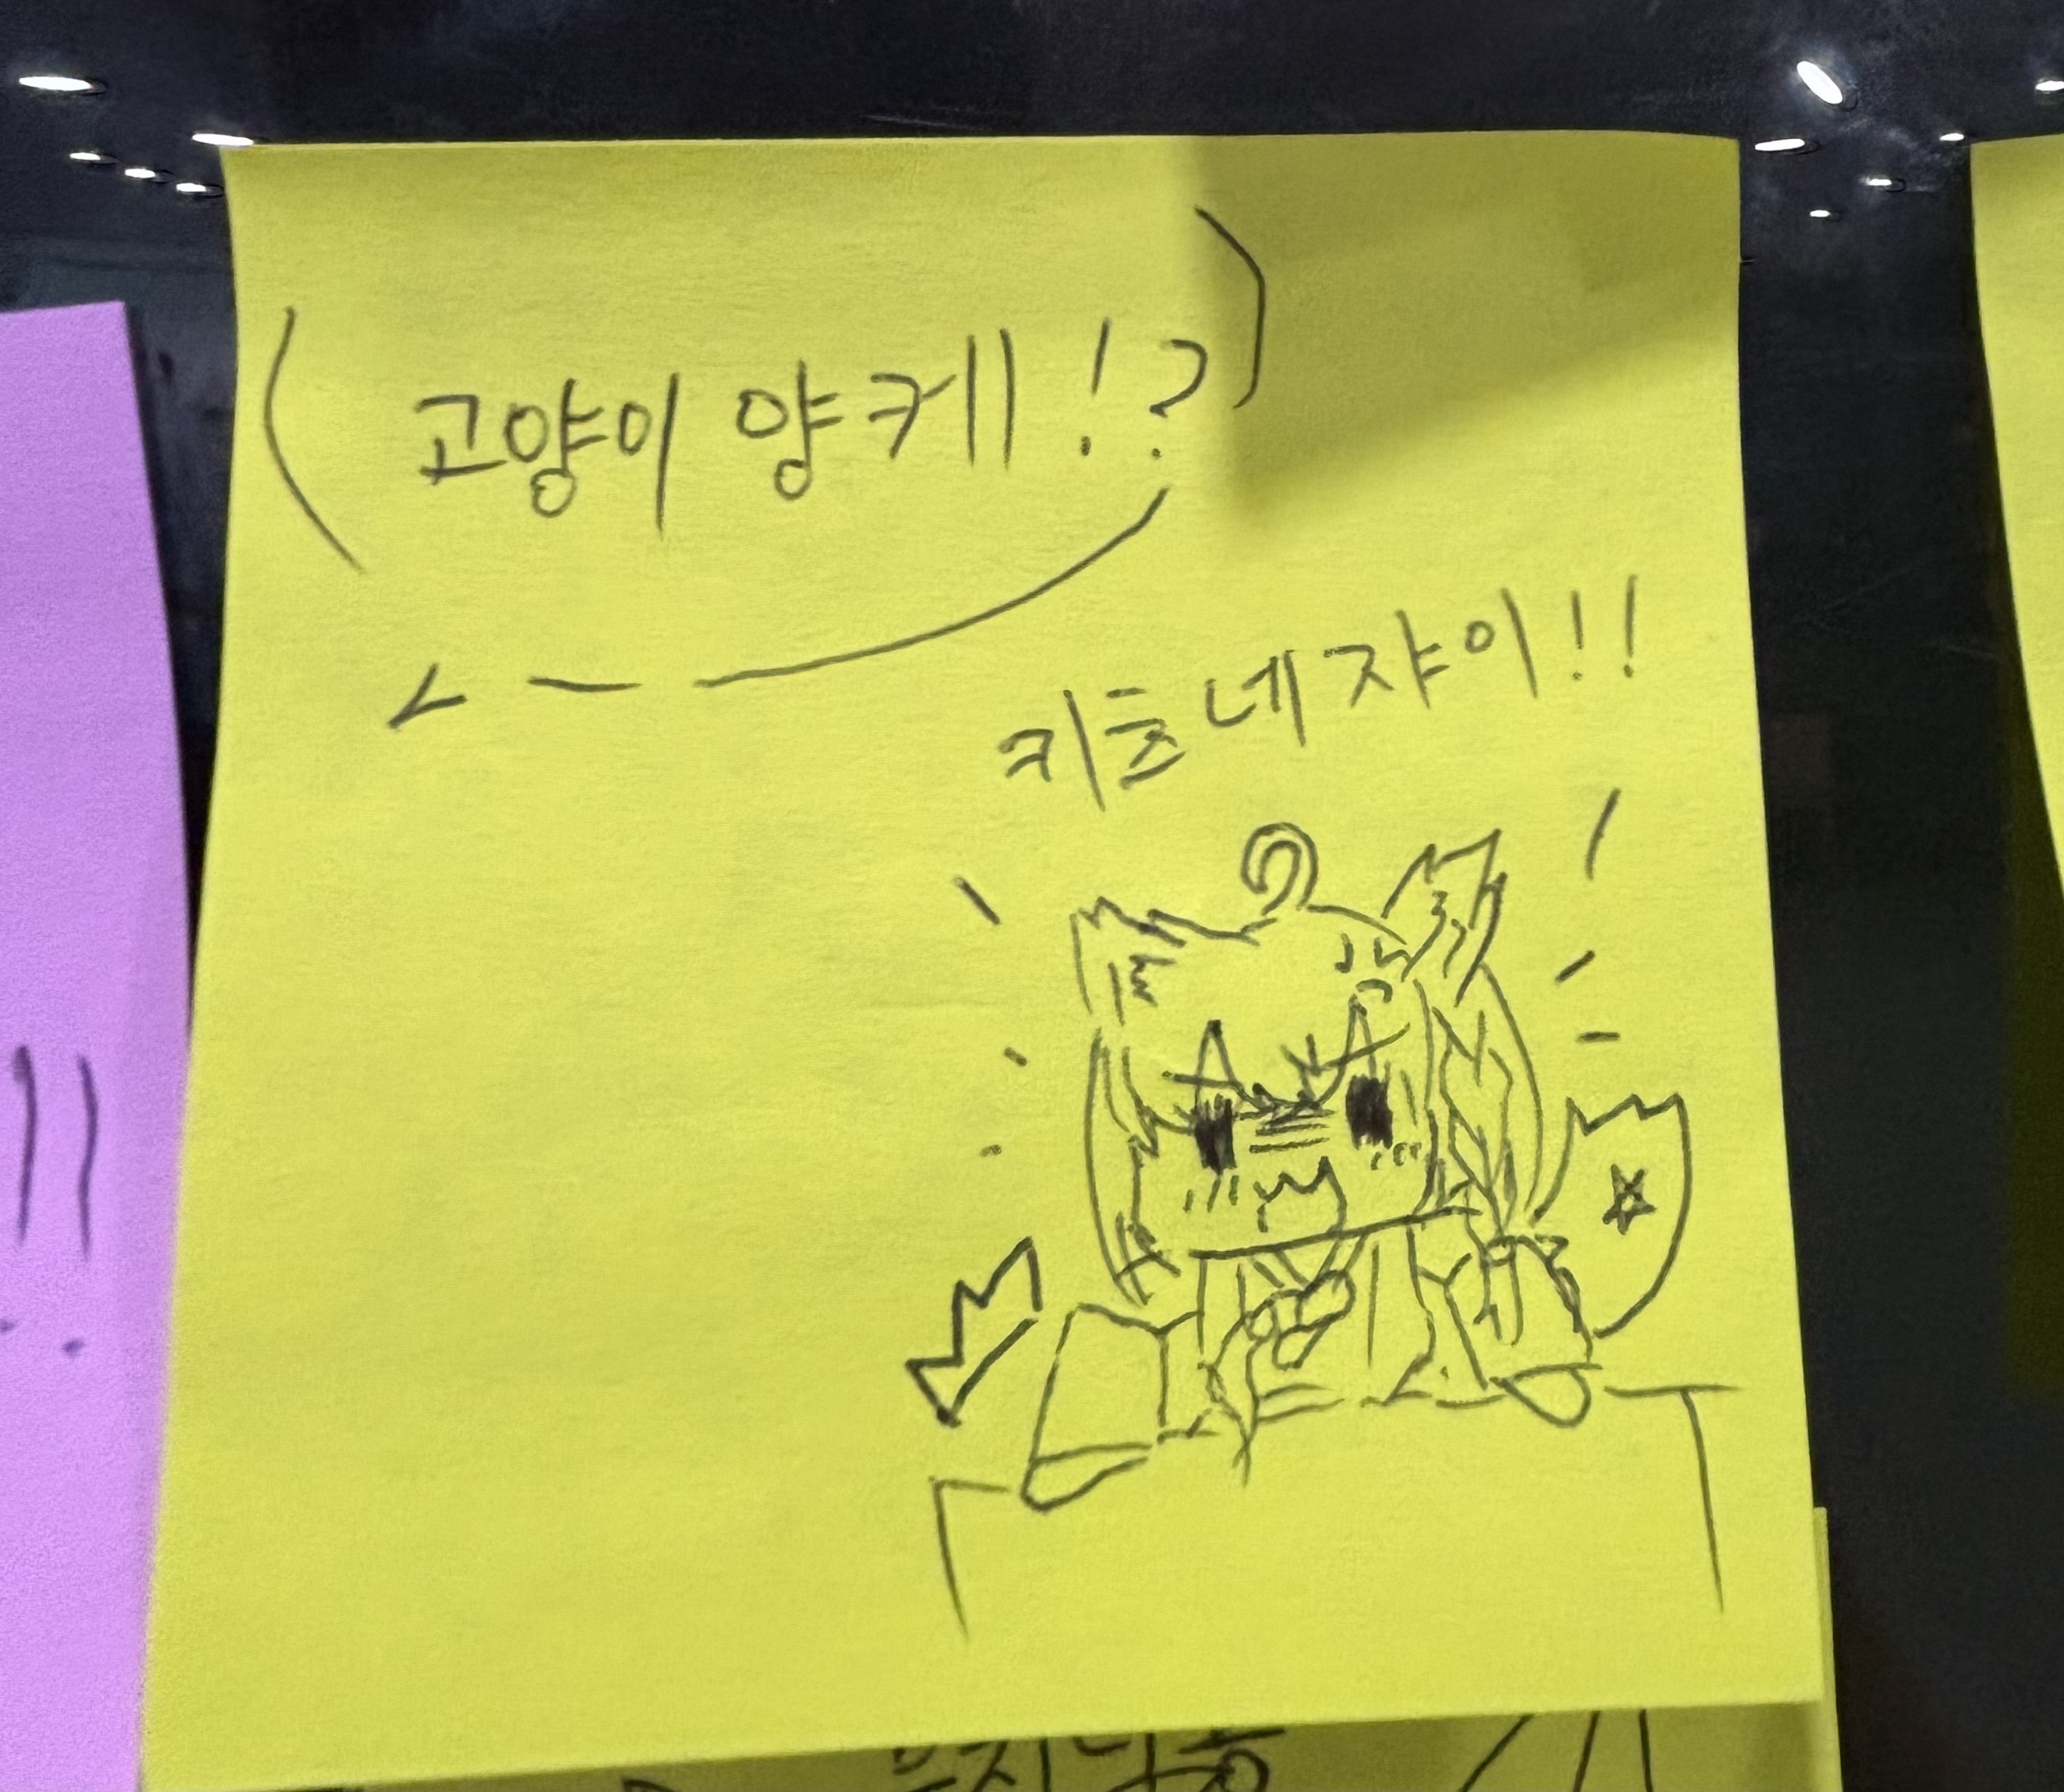 고양이 양케!?
키츠네쟈이!!
!!